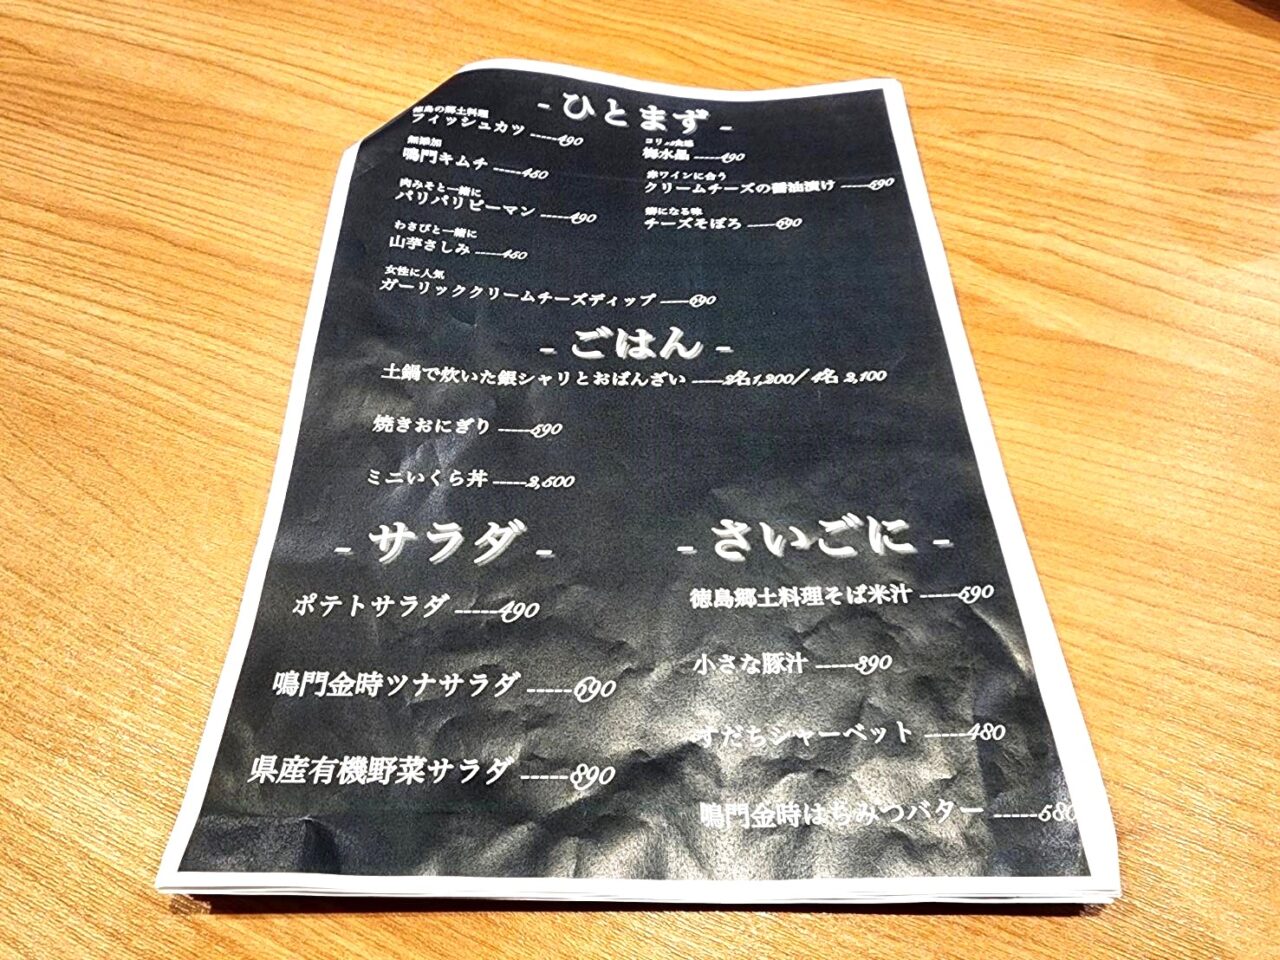 - ひとまず -
徳島の郷土料理
フィッシュカツ -----490
無添加
鳴門キムチ -----450
肉みそと一緒に
パリパリピーマン -----490
わさびと一緒に
山芋さしみ -----450
女性に人気
ガーリッククリームチーズディップ -----590
コリコリ食感
梅水晶 -----490
赤ワインに合う
クリームチーズの醤油漬け -----590
癖になる味
チーズそぼろ -----590
- ごはん -
土鍋で炊いた銀シャリとおばんざい -----2名1,200/ 4名 2,100
焼きおにぎり -----590
ミニいくら丼 -----2,500
- サラダ -
ポテトサラダ -----490
鳴門金時ツナサラダ -----690
県産有機野菜サラダ -----890
- さいごに -
徳島郷土料理そば米汁 -----590
小さな豚汁 -----390
すだちシャーベット -----480
鳴門金時はちみつバター -----580